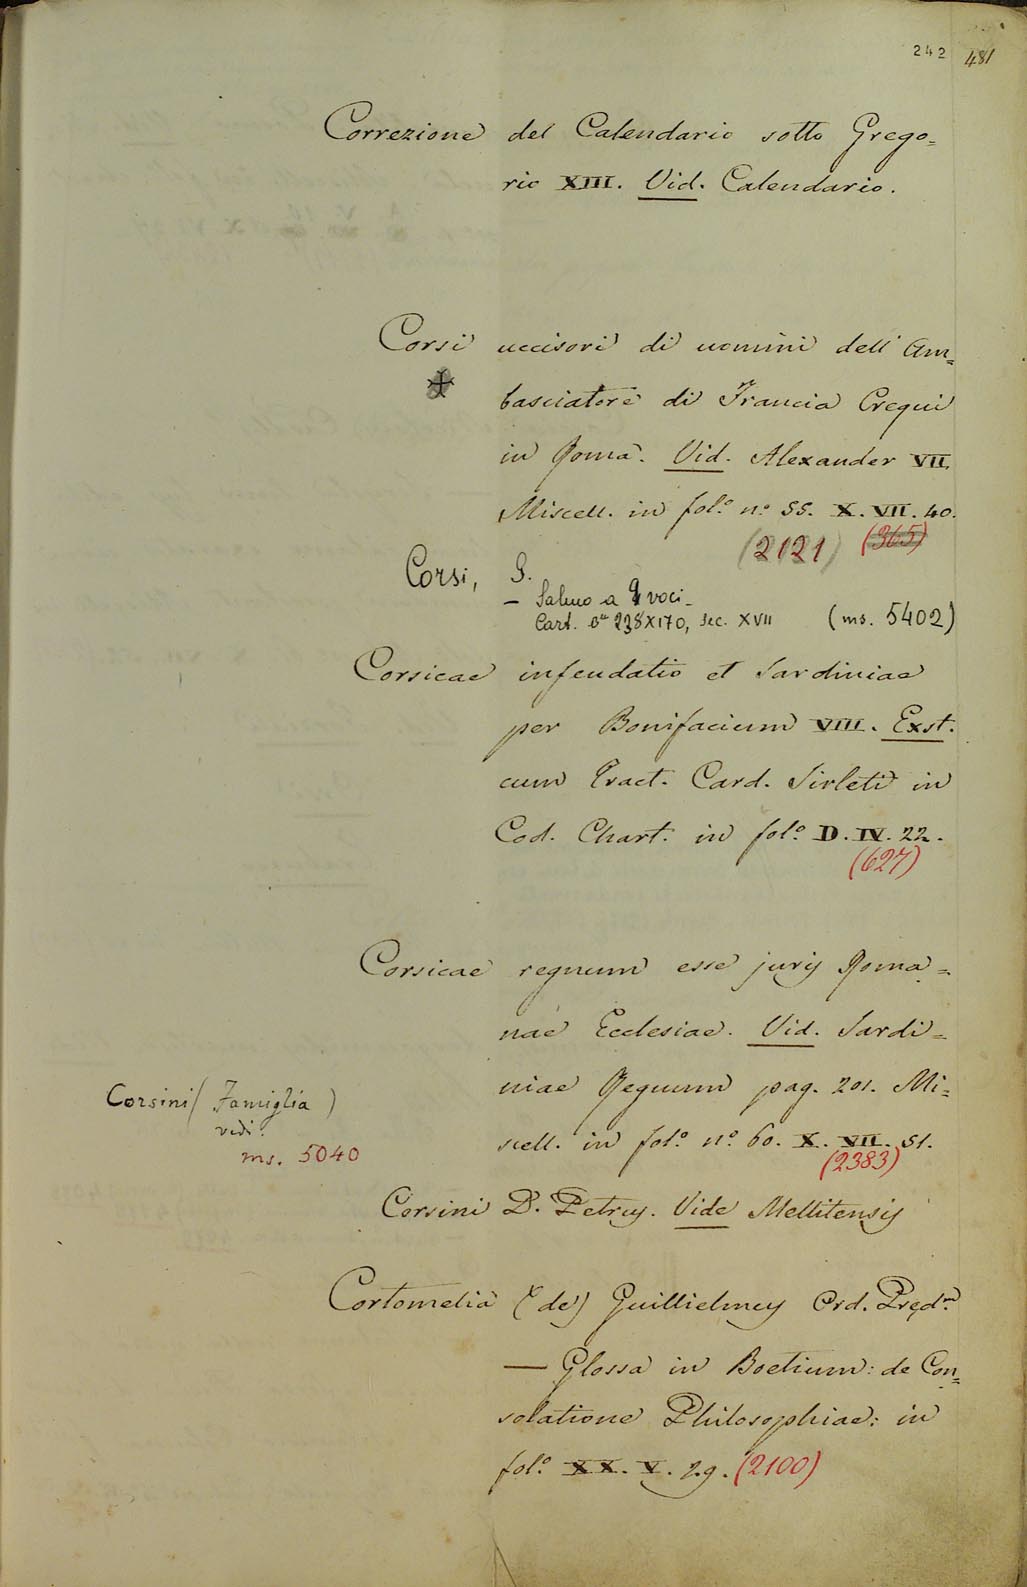 242 481
Correzione del Calendario sotto Grego=
rio XIII. Vid. Calendario.
Corsi uccisori di uomini dell' Am=
basciatore di Francia Crequi
in Roma. Vid. Alexander VII.
Miscell. in fol.º n.º 55. X. VII. 40.
(2121) (365)
Corsi, S.
– Salmo a 9 voci –
Cart. 238x170, sec. XVII (ms. 5402)
Corsicae infeudatio et Sardiniae
per Bonifacium VIII. Exst.
cum Tract. Card. Sirleti in
Cod. Chart. in fol.º D. IV. 22.
(627)
Corsicae regnum esse juris Roma=
nae Ecclesiae. Vid. Sardi=
niae Regnum pag. 201. Mi=
scell. in fol.º n.º 60. X. VII. 51.
(2383)
Corsini (Famiglia)
vedi:
ms. 5040
Corsini D. Petrus. Vide Mellitensis
Cortomelia (de) Guillielmus Ord. Pred.m
— Glossa in Boetium: de Con=
solatione Philosophiae: in
fol.º XX. V. 29. (2100)